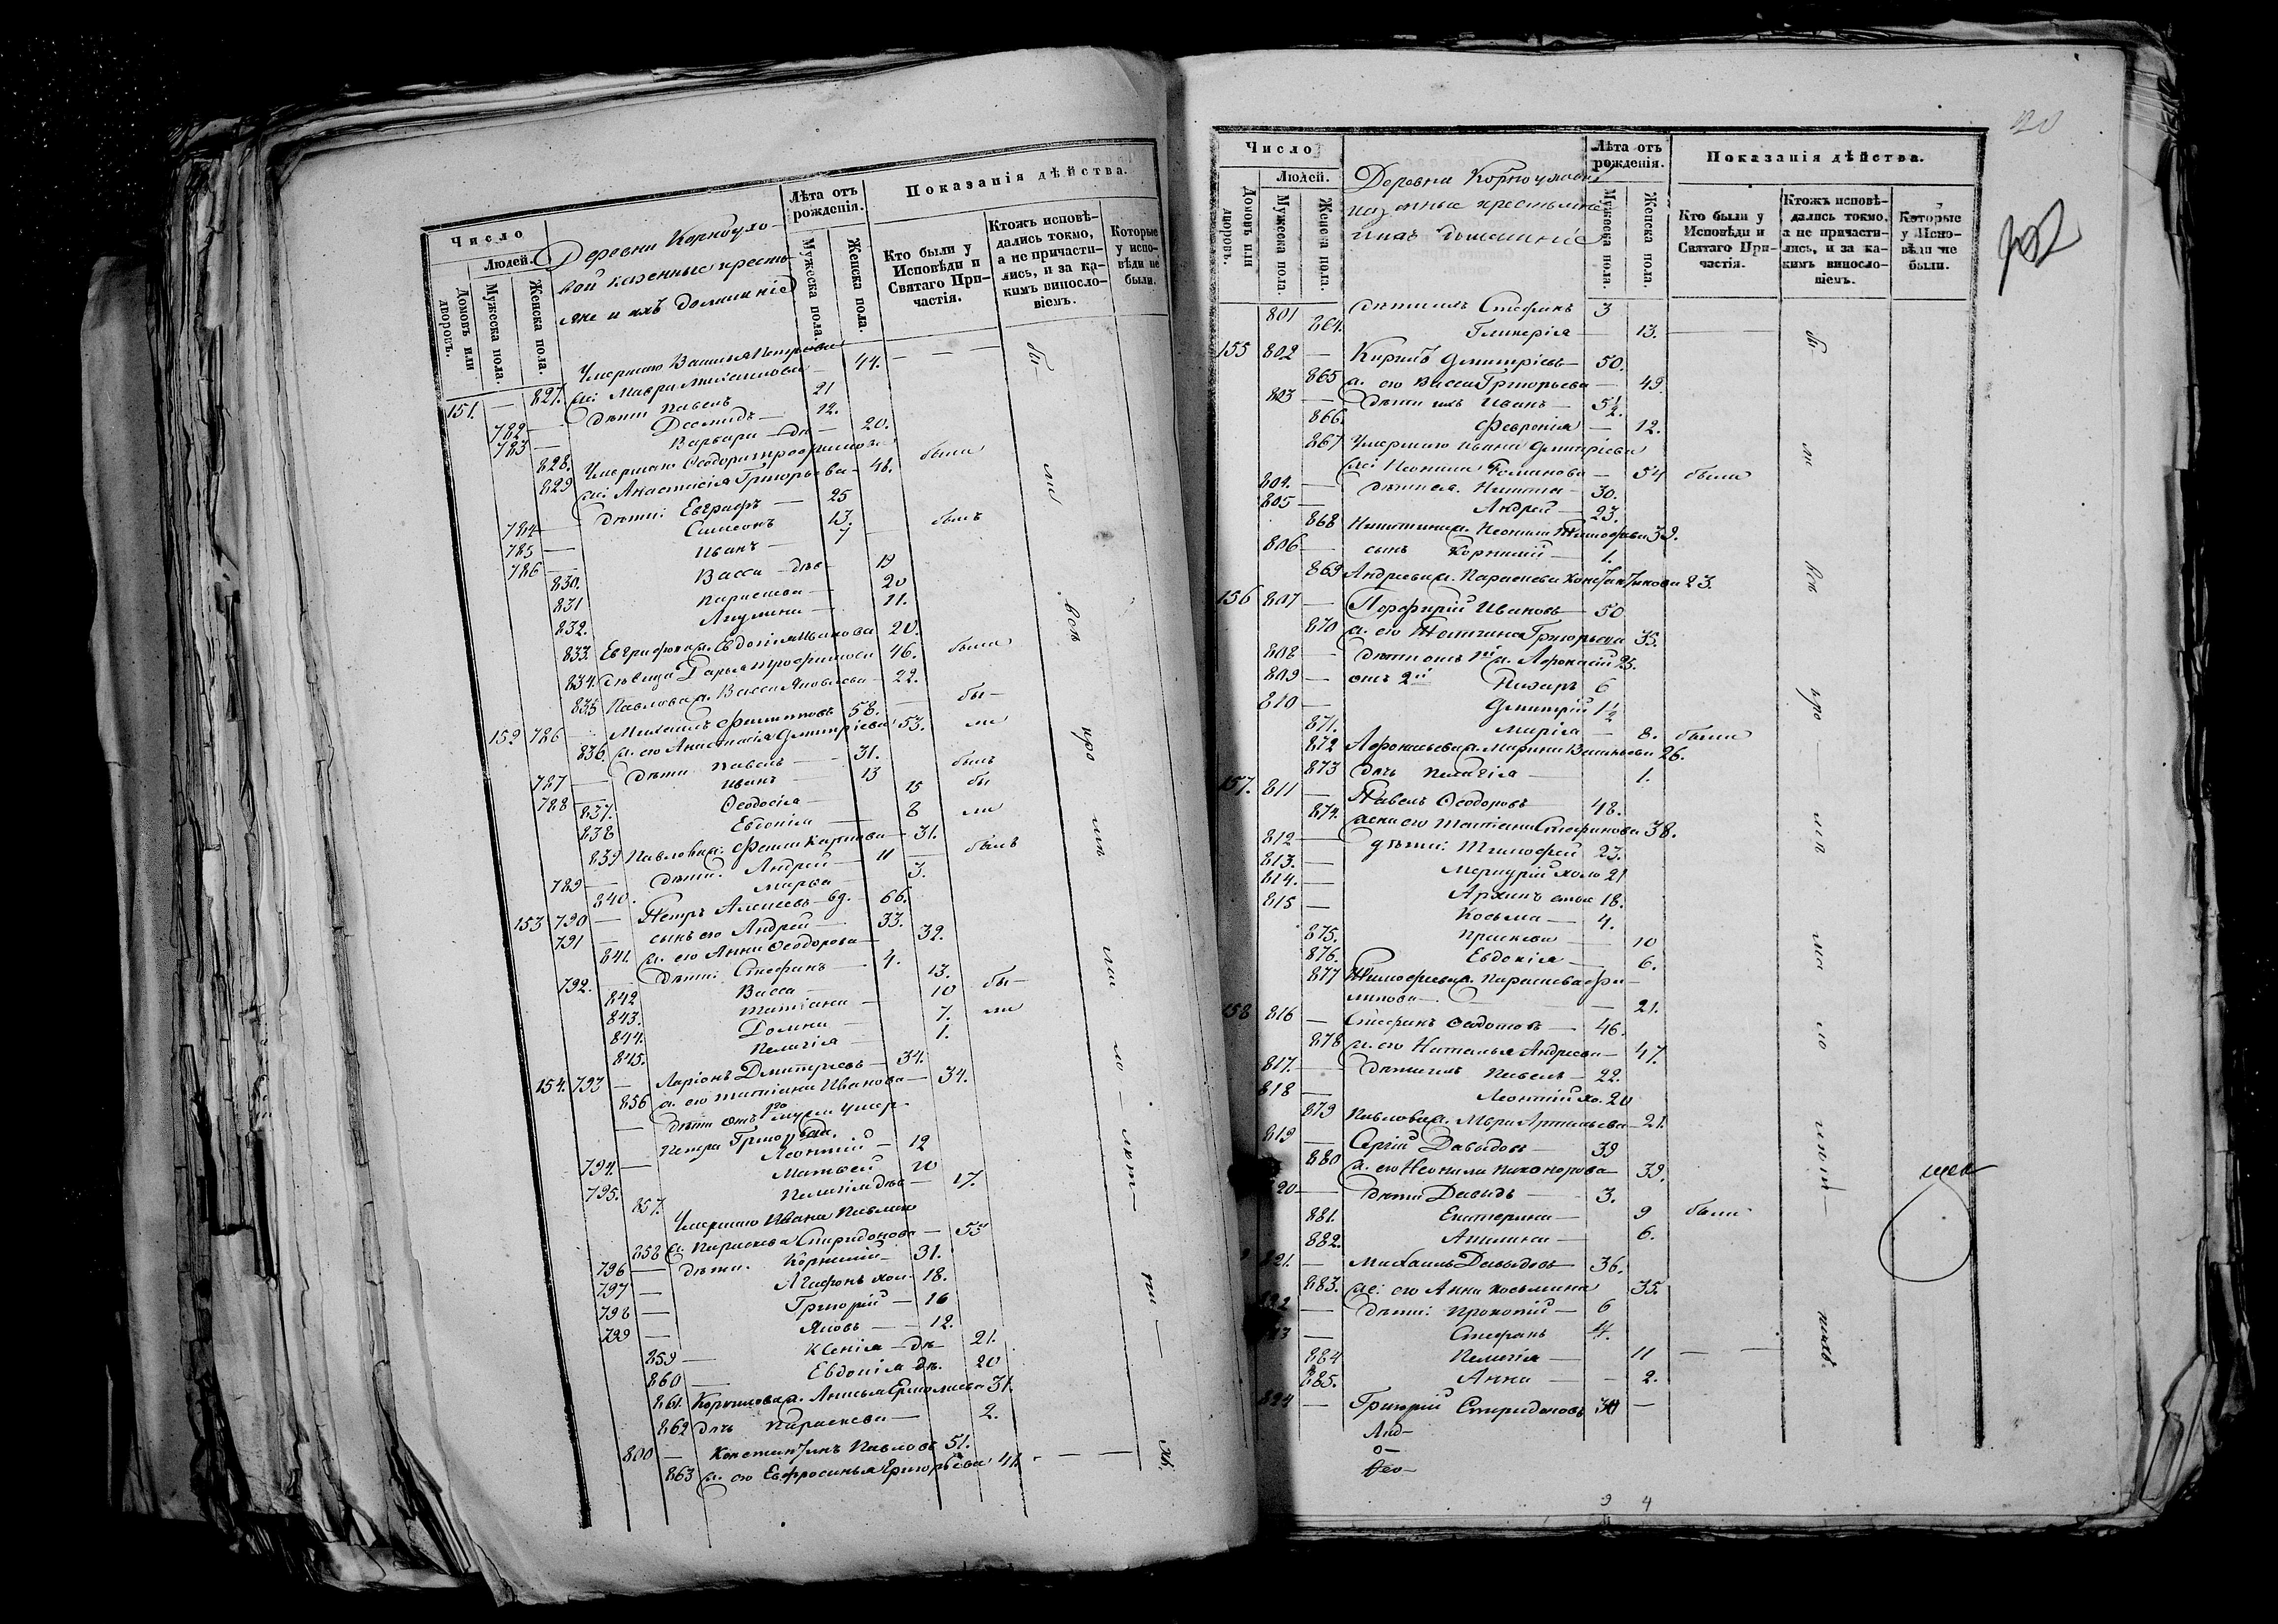 Число
Людей.
Домовъ или дворовъ.
Мужеска пола.
Женска пола.
Деревни Корноухо-
вой казенные кресть-
яне и ихъ домашніе
Лѣта отъ рожденія.
Мужеска пола.
Женска пола.
Показанія дѣйства.
Кто были у Исповѣди и Святаго При-частія.
Ктожъ исповѣ-дались токмо, а не причасти-лись, и за ка-кимъ винослo-віемъ.
Которые у испо-вѣди не были.
Умершаго
151. — 827. ж: Мавра Михаилова — 44.
782 — дѣти Павелъ 21
783 — Діомидъ — 12.
828. Варвара — дѣ — 20.
Умершаго Ѳеодора Трофимова
829 ж: Анастасія Григорьева — 48. была
784 — дѣти: Евграфъ — 25
785 — Симеонъ 13. былъ
786 — Иванъ — 7
830. Васса — дѣв — 19
831 Параскева — 20
832. Акулина — 11.
833. Евграфова ж. Евдокія Иванова 20.
834. дѣвица Дарья Трофимова 46. была
835 Павлова ж. Васса Яковлева — 22.
152 786 — Михаилъ Филипповъ 58. — бы-
836. ж. его Анастасія Дмитріева 53. ли
787 — дѣти Павелъ — 31. былъ
788 — Иванъ — 13 бы
837. Ѳеодосія — 15
838 Евдокія — 8 ли
839 Павлова ж: Карпова — 31.
789 — дѣти: Андрей — 11 былъ
840. Марѳа — 3.
153 790 — Петръ Алексеевъ — вд. — 66.
791 — сынъ его Андрей — 33.
841. ж. его Анна Ѳеодорова — 32.
792. — дѣти: Стефанъ — 4.
842 Васса — 13. бы-
843. Татіана — 10 ли
844. Домна — 7.
845. Пелагія — 1.
154. 793 — Ларіонъ Дмитріевъ — 34.
856 ж. его Татіана Иванова — 34.
— дѣти отъ 1го мужа умер.
Петра
794. — Леонтій — 12
795. Матвей 10
857. Пелагія дѣв — 17.
Умершаго Ивана
858 ж. Параскева Спиридонова — 53
796 — дѣти. Корнилій — 31.
797 — Агафонъ хол. 18.
798 — Григорій — 16
799 — Яковъ — 12.
859 — Ксенія — дѣ — 21.
860 — Евдокія дѣ. 20
861. Корнилова ж. Анисья Ермолаева 31.
862 дочь Параскева — 2.
800 — Константинъ Павловъ 51.
863 ж. его Евфросинья Григорьева 41. — — —
20
Число
Людей.
Домовъ или дворовъ.
Мужеска пола.
Женска пола.
Деревни Корноуховой
казенные крестьяне
и ихъ домашніе
Лѣта отъ рожденія.
Мужеска пола.
Женска пола.
Показанія дѣйства.
Кто были у Исповѣди и Святаго При-частія.
Ктожъ исповѣ-дались токмо, а не причасти-лись, и за ка-кимъ винослo-віемъ.
Которые у Испо-вѣди не были.
801 дѣти ихъ Стефанъ 3
864. Гликерія — 13. —
155 802 — Кириллъ Дмитріевъ — 50.
865 ж. его Васса Григорьева — 49.
803 — дѣти ихъ Иванъ — 5½.
866. Февронія — 12.
867 Умершаго Ивана Дмитріева
ж: Неонила Романова — 54 была
804. — дѣти ея. Никита — 30.
805 — Андрей — 23.
868 Никитина ж. Неонила Тимофеева 32.
806 — сынъ Корнилій — 1.
869 Андреева ж. Параскева Константинова 23.
156 807 — Порфирій Ивановъ — 50
870 ж. его Григорьева 35.
808 — дѣти отъ 1й ж. Афонасій 25.
809 — отъ 2й Назаръ 6
810 — Дмитрій 1½
871. Марія — 8. была
872 Афонасьева ж. Марина 26.
873 дочь Пелагія — 1.
157. 811 — Павелъ Ѳеодоровъ — 48.
874. жена его Татіана Стефанова 38.
812 — дѣти: Тимофей 23.
813. — Меркурій холо 21
814. — Архипъ 18.
815 — Косьма — 4.
875. Праскева — 10
876. Евдокія — 6.
877 Тимофеева ж. Параскева Фи-
липова — 21.
158 816 — Стефанъ Ѳедотовъ — 46.
878 ж. его Наталья Андреева — 47.
817. — дѣти ихъ Павелъ — 22.
818 — Леонтій хо. 20
879 Павлова ж. 21.
819 — Сергій Давыдовъ — 39
880 ж. его Неонила Никонорова 39.
20 — дѣти Давыдъ — 3.
881. Екатерина — 9 была
882. Акилина — 6.
21. — Михаилъ Давыдовъ — 36.
883. ж: его Анна Косьмина 35.
— дѣти: Прокопій — 6
— Стефанъ 4.
884 Пелагія — 11 — —
885. Анна — 2.
824 — Григорій Спиридоновъ 30 —
9 4